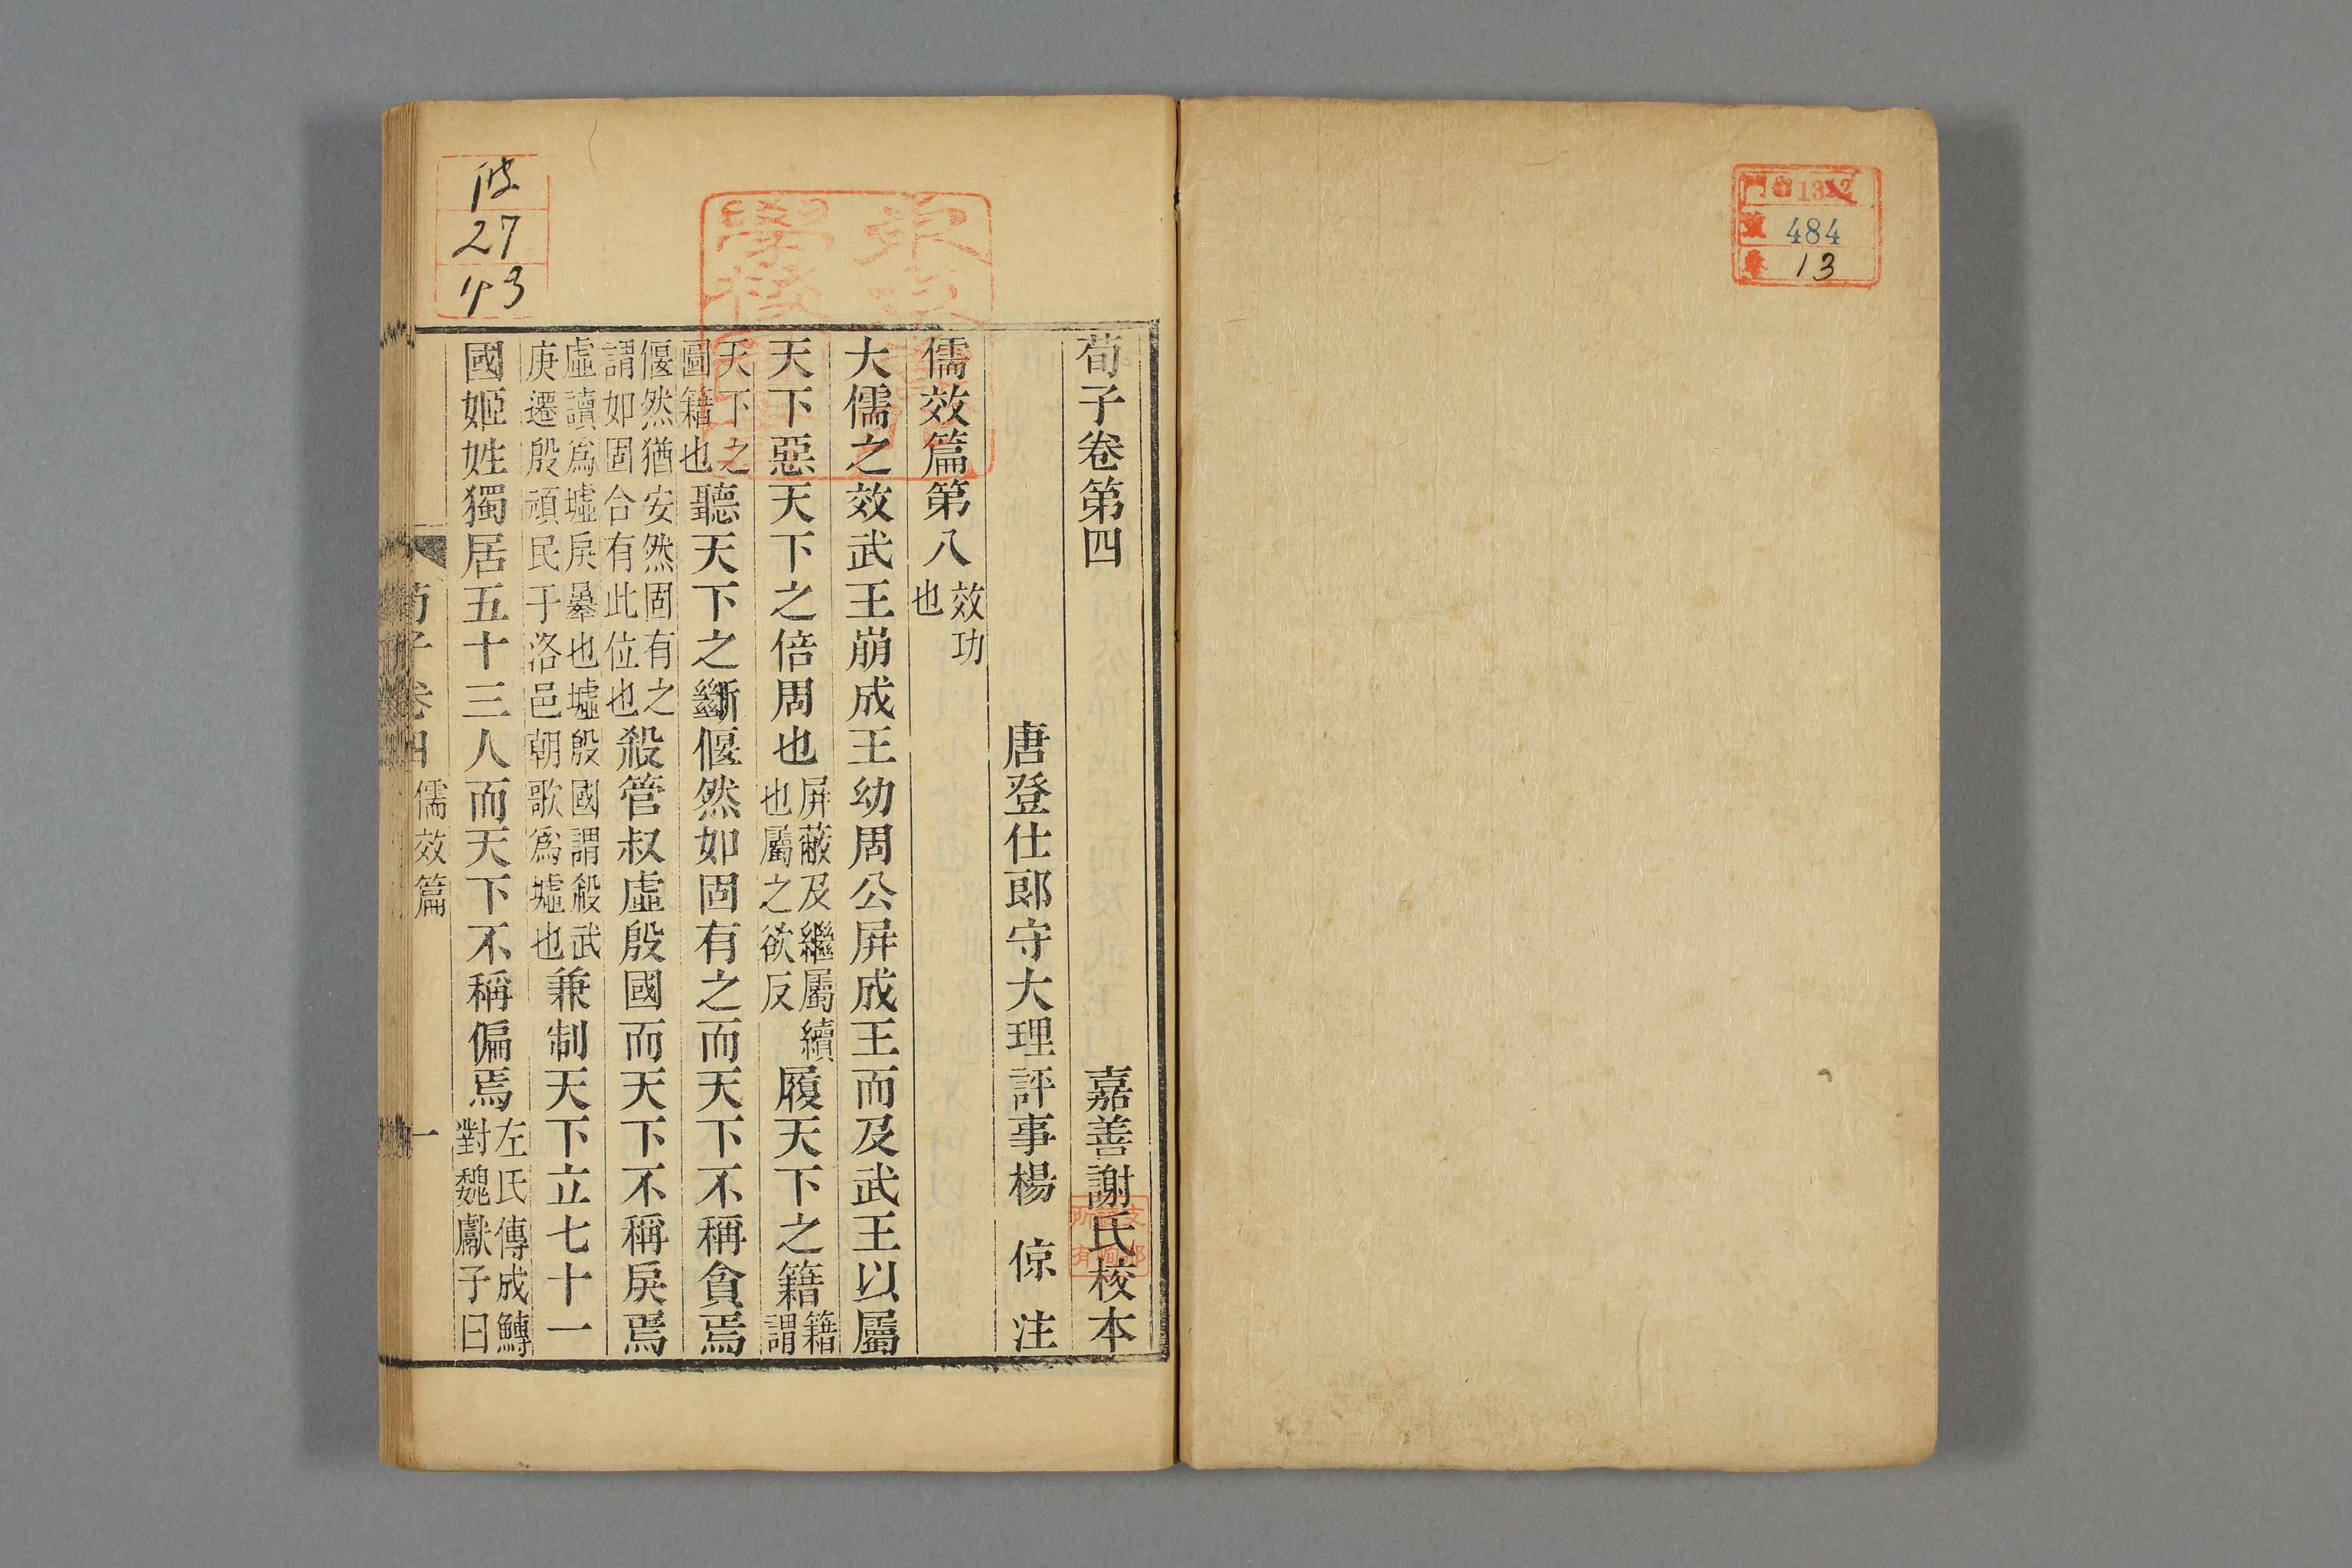 484
13
荀子卷第四 嘉善謝氏校本
唐登仕郎守大理評事楊 倞 注
儒效篇第八效功也
大儒之效武王崩成王幼周公屏成王而及武王以屬
天下惡天下之倍周也屏蔽及繼屬續也屬之欲反履天下之籍籍謂
天下之圖籍也聽天下之斷偃然如固有之而天下不稱貪焉
偃然猶安然固有之謂如固合有此位也殺管叔虛殷國而天下不稱戾焉
虛讀爲墟戾暴也墟殷國謂殺武庚遷殷頑民于洛邑朝歌爲墟也兼制天下立七十一
國姬姓獨居五十三人而天下不稱偏焉左氏傳成鱄對魏獻子曰
荀子卷四 儒效篇 一
27
43